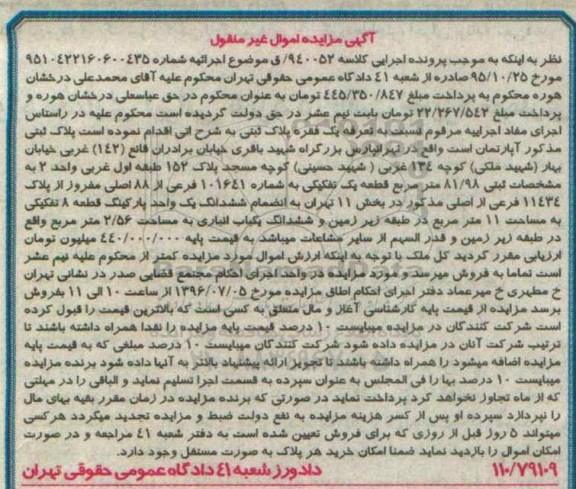 آگهی مزایده اموال غیر منقول
نظر به اینکه به موجب پرونده اجرایی کلاسه ۹۴۰۰۵۲/ ق موضوع اجرائیه شماره ۹۵۱۰۴۲۲۱۶۰۶۰۰۴۳۵
مورخ ۹۵/۱۰/۲۵ صادره از شعبه ۴۱ دادگاه عمومی حقوقی تهران محکوم علیه آقای محمدعلی درخشان
هوره محکوم به پرداخت مبلغ ۴۴۵/۳۵۰/۸۴۷ تومان به عنوان محکوم در حق عباسعلی درخشان هوره و
پرداخت مبلغ ۲۲/۲۶۷/۵۴۲ تومان بابت نیم عشر در حق دولت گردیده است محکوم علیه در راستای
اجرای مفاد اجراییه مرقوم نسبت به تعرفه یک فقره پلاک ثبتی به شرح اتی اقدام نموده است پلاک ثبتی
مذکور آپارتمان است واقع در تهرانپارس بزرگراه شهید باقری خیابان برادران قانع (۱۴۲) غربی خیابان
بهار (شهید ملکی) کوچه ۱۳۴ غربی ( شهید حسینی) کوچه مسجد پلاک ۱۵۲ طبقه اول غربی واحد ۲ به
مشخصات ثبتی ۸۱/۹۸ متر مربع قطعه یک تفکیکی به شماره ۱۰۱۶۴۱ فرعی از ۸۸ اصلی مفروز از پلاک
۱۱۴۳۴ فرعی از اصلی مذکور در بخش ۱۱ تهران به انضمام ششدانگ یک واحد پارکینگ قطعه ۸ تفکیکی
به مساحت ۱۱ متر مربع در طبقه زیر زمین و ششدانگ یکباب انباری به مساحت ۲/۵۶ متر مربع واقع
در طبقه زیر زمین و قدر السهم از سایر مشاعات میباشد به قیمت پایه ۴۴۰/۰۰۰/۰۰۰ میلیون تومان
ارزیابی مقرر گردید کل ملک با توجه به اینکه ارزش اموال مورد مزایده کمتر از محکوم علیه نیم عشر
است تماما به فروش میرسد و مورد مزایده در واحد اجرای احکام مجتمع قضایی صدر در نشانی تهران
خ مطهری خ میرعماد دفتر اجرای احکام اطاق مزایده مورخ ۱۳۹۶/۰۷/۰۵ از ساعت ۱۰ الی ۱۱ بفروش
برسد مزایده از قیمت پایه کارشناسی آغاز و مال متعلق به کسی است که بالاترین قیمت را قبول کرده
است شرکت کنندگان در مزایده میبایست ۱۰ درصد قیمت پایه مزایده را نقدا همراه داشته باشند تا
ترتیب شرکت آنان در مزایده داده شود شرکت کنندگان میبایست ۱۰ درصد مبلغی که به قیمت پایه
مزایده اضافه میشود را همراه داشته باشند تا تجویز ارائه پیشنهاد بالاتر به آنها داده شود برنده مزایده
میبایست ۱۰ درصد بها را فی المجلس به عنوان سپرده به قسمت اجرا تسلیم نماید و الباقی را در مهلتی
که از ماه تجاوز نخواهد کرد پرداخت نماید در صورتی که برنده مزایده در زمان مقرر بقیه بهای مال
را نپردازد سپرده او پس از کسر هزینه مزایده به نفع دولت ضبط و مزایده تجدید میگردد هرکسی
میتواند ۵ روز قبل از روزی که برای فروش تعیین شده است به دفتر شعبه ۴۱ مراجعه و در صورت
امکان اموال را بازدید نماید ضمنا امکان خرید هر پلاک به صورت مستقل وجود دارد.
۱۱۰/۷۹۱۰۹ دادورز شعبه ۴۱ دادگاه عمومی حقوقی تهران